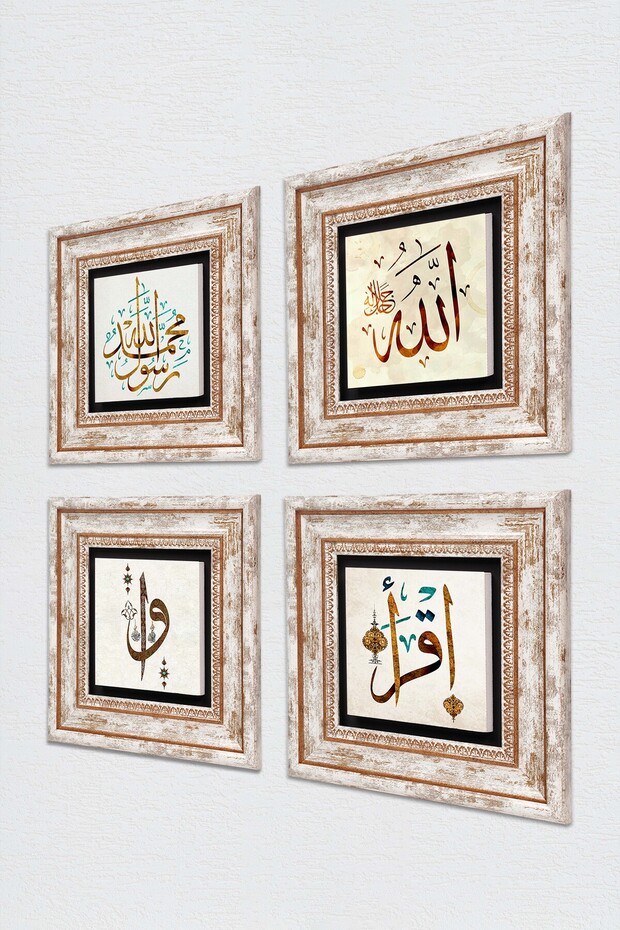 الله جل جلاله
محمد رسول الله
اقرأ
وا